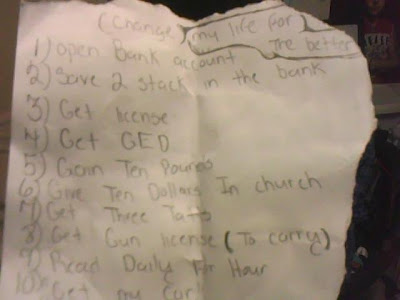 (Change) my life for
The better
1) open Bank account
2) Save 2 stack in the bank
3) Get license
4) Get GED
5) Gain Ten Pounds
6) Give Ten Dollars In church
7) Get Three Tatts
8) Get Gun license (To carry)
9) Read Daily For Hour
10) Get my Car